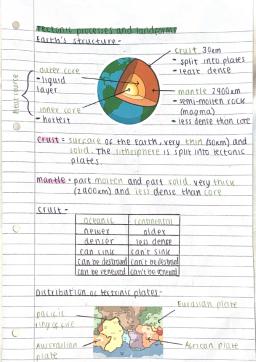 Tectonic processes and landforms
Earth's structure -
crust 30km
- split into plates
- least dense
outer core
- liquid
layer
heat source
mantle 2900km
- semi-molten rock
(magma)
- less dense than core
inner core
- hottest
crust = surface of the Earth, very thin (30km) and
solid. The lithosphere is split into tectonic
plates.
mantle = part molten and part solid, very thick
(2900km) and less dense than core
crust -
oceanic continental
newer older
denser less dense
can sink can't sink
can be destroyed can't be destroyed
can be renewed can't be renewed
Distribution of tectonic plates -
Eurasian plate
pacific
ring of fire
Australian
plate
African plate